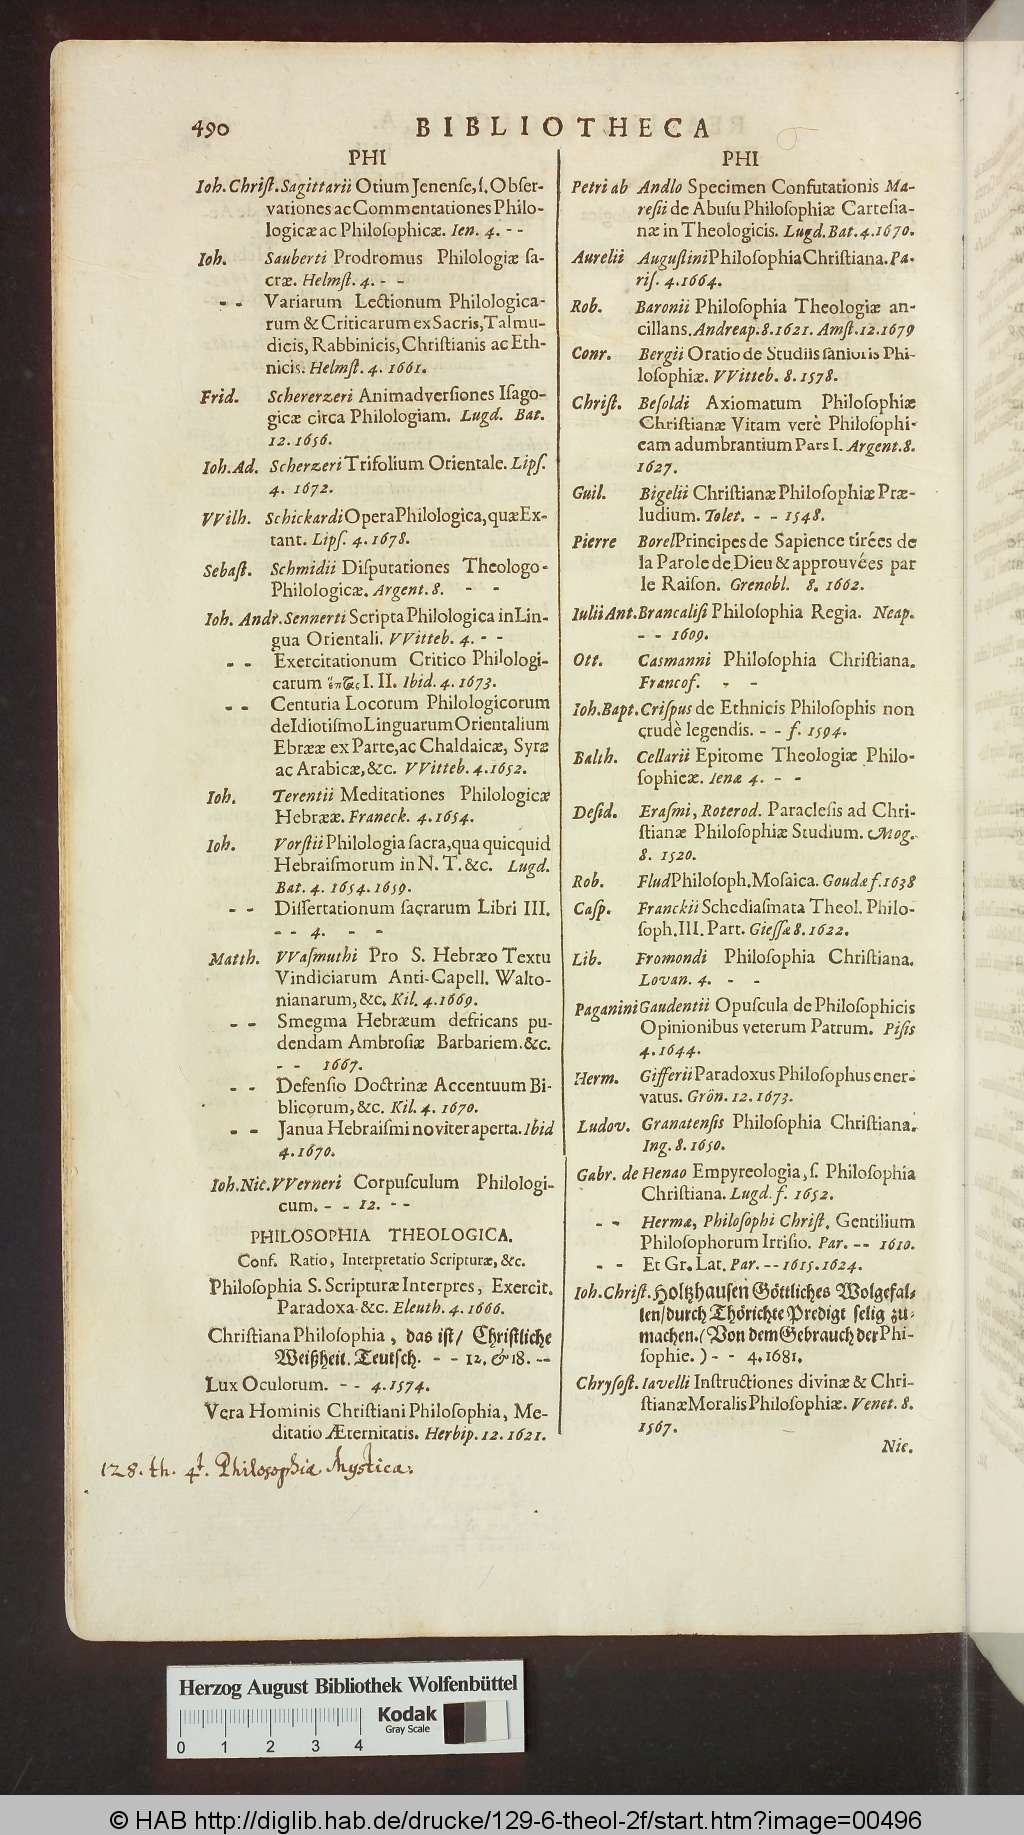 490 BIBLIOTHECA
PHI
Ioh. Chriſt. Sagittarii Otium Jenenſe, ſ. Obſer-
vationes ac Commentationes Philo-
logicæ ac Philoſophicæ. Ien. 4. - -
Ioh. Sauberti Prodromus Philologiæ ſa-
cræ. Helmſt. 4. - -
- - Variarum Lectionum Philologica-
rum & Criticarum ex Sacris, Talmu-
dicis, Rabbinicis, Chriſtianis ac Eth-
nicis. Helmſt. 4. 1661.
Frid. Schererzeri Animadverſiones Iſago-
gicæ circa Philologiam. Lugd. Bat.
12. 1656.
Ioh. Ad. Scherzeri Trifolium Orientale. Lipſ.
4. 1672.
VVilh. Schickardi Opera Philologica, quæ Ex-
tant. Lipſ. 4. 1678.
Sebaſt. Schmidii Diſputationes Theologo-
Philologicæ. Argent. 8. - -
Ioh. Andr. Sennerti Scripta Philologica in Lin-
gua Orientali. VVitteb. 4. - -
- - Exercitationum Critico Philologi-
carum I. II. Ibid. 4. 1673.
- - Centuria Locorum Philologicorum
de Idiotiſmo Linguarum Orientalium
Ebrææ ex Parte, ac Chaldaicæ, Syræ
ac Arabicæ, &c. VVitteb. 4. 1652.
Ioh. Terentii Meditationes Philologicæ
Hebrææ. Franeck. 4. 1654.
Ioh. Vorſtii Philologia ſacra, qua quicquid
Hebraiſmorum in N. T. &c. Lugd.
Bat. 4. 1654. 1659.
- - Diſſertationum ſacrarum Libri III.
- - 4. - -
Matth. VVaſmuthi Pro S. Hebræo Textu
Vindiciarum Anti-Capell. Walto-
nianarum, &c. Kil. 4. 1669.
- - Smegma Hebræum defricans pu-
dendam Ambroſiæ Barbariem. &c.
- - 1667.
- - Defenſio Doctrinæ Accentuum Bi-
blicorum, &c. Kil. 4. 1670.
- - Janua Hebraiſmi noviter aperta. Ibid
4. 1670.
Ioh. Nic. VVerneri Corpuſculum Philologi-
cum. - - 12. - -
PHILOSOPHIA THEOLOGICA.
Conf. Ratio, Interpretatio Scripturæ, &c.
Philoſophia S. Scripturæ Interpres, Exercit.
Paradoxa &c. Eleuth. 4. 1666.
Chriſtiana Philoſophia, das iſt/ Chriſtliche
Weißheit. Teutſch. - - 12. & 18. - -
Lux Oculorum. - - 4. 1574.
Vera Hominis Chriſtiani Philoſophia, Me-
ditatio Æternitatis. Herbip. 12. 1621.
128. th. 4t. Philosophia Mystica.
PHI
Petri ab Andlo Specimen Confutationis Ma-
reſii de Abuſu Philoſophiæ Carteſia-
næ in Theologicis. Lugd. Bat. 4. 1670.
Aurelii Auguſtini Philoſophia Chriſtiana. Pa-
riſ. 4. 1664.
Rob. Baronii Philoſophia Theologiæ an-
cillans. Andreap. 8. 1621. Amſt. 12. 1679
Conr. Bergii Oratio de Studiis ſanioris Phi-
loſophiæ. VVitteb. 8. 1578.
Chriſt. Beſoldi Axiomatum Philoſophiæ
Chriſtianæ Vitam verè Philoſophi-
cam adumbrantium Pars I. Argent. 8.
1627.
Guil. Bigelii Chriſtianæ Philoſophiæ Præ-
ludium. Tolet. - - 1548.
Pierre Borel Principes de Sapience tirées de
la Parole de Dieu & approuvées par
le Raiſon. Grenobl. 8. 1662.
Iulii Ant. Brancaliſi Philoſophia Regia. Neap.
- - 1609.
Ott. Casmanni Philoſophia Chriſtiana.
Francof. - -
Ioh. Bapt. Criſpus de Ethnicis Philoſophis non
crudè legendis. - - f. 1594.
Balth. Cellarii Epitome Theologiæ Philo-
ſophicæ. Ienæ 4. - -
Deſid. Eraſmi, Roterod. Paracleſis ad Chri-
ſtianæ Philoſophiæ Studium. Mog.
8. 1520.
Rob. Flud Philoſoph. Moſaica. Goudæ f. 1638
Caſp. Franckii Schediaſmata Theol. Philo-
ſoph. III. Part. Gieſſæ 8. 1622.
Lib. Fromondi Philoſophia Chriſtiana.
Lovan. 4. - -
Paganini Gaudentii Opuſcula de Philoſophicis
Opinionibus veterum Patrum. Piſis
4. 1644.
Herm. Gifferii Paradoxus Philoſophus ener-
vatus. Grön. 12. 1673.
Ludov. Granatenſis Philoſophia Chriſtiana.
Ing. 8. 1650.
Gabr. de Henao Empyreologia, ſ. Philoſophia
Chriſtiana. Lugd. f. 1652.
- - Hermæ, Philoſophi Chriſt. Gentilium
Philoſophorum Irriſio. Par. - - 1610.
- - Et Gr. Lat. Par. - - 1615. 1624.
Ioh. Chriſt. Holtzhauſen Göttliches Wolgefal-
len/ durch Thörichte Predigt ſelig zu-
machen. (Von dem Gebrauch der Phi-
ſophie.) - - 4. 1681.
Chryſoſt. Iavelli Inſtructiones divinæ & Chri-
ſtianæ Moralis Philoſophiæ. Venet. 8.
1567.
Nic.
Herzog August Bibliothek Wolfenbüttel
Kodak
Gray Scale
0 1 2 3 4
© HAB http://diglib.hab.de/drucke/129-6-theol-2f/start.htm?image=00496